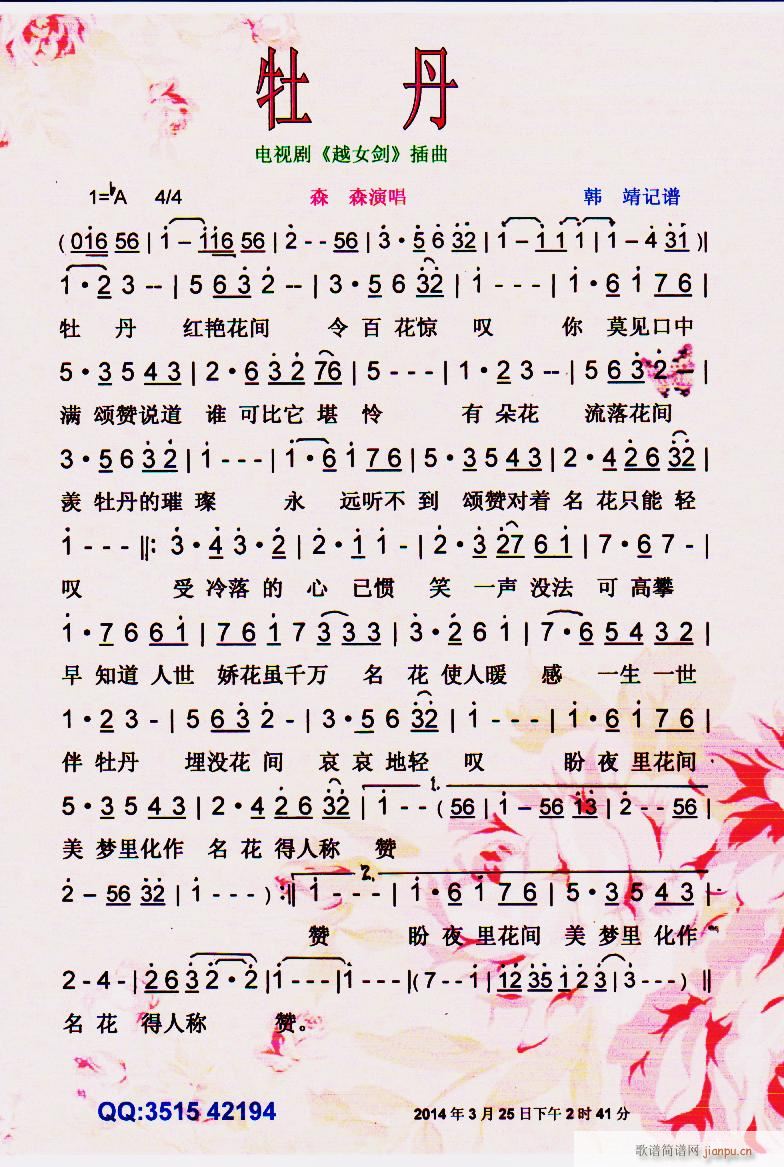 牡 丹
电视剧《越女剑》插曲
1=bA 4/4 森 森演唱 韩 靖记谱
( 016 56 | 1 – 116 56 | 2 - - 56 | 3 · 5 6 32 | 1 – 1 11 | 1 – 4 31 ) ||
1 · 2 3 -- | 5 6 3 2 -- | 3 · 5 6 32 | 1 - - - | 1 · 6 1 7 6 |
牡 丹 红艳花间 令百花惊 叹 你 莫见口中
5 · 3 5 4 3 | 2 · 6 3 2 76 | 5 - - - | 1 · 2 3 -- | 5 6 3 2 – |
满 颂赞说道 谁 可比它 堪 怜 有 朵花 流落花间
3 · 5 6 32 | 1 - - - | 1 · 6 1 7 6 | 5 · 3 5 4 3 | 2 · 4 2 6 32 |
羡 牡丹的璀 璨 永 远听不 到 颂赞对着 名 花只能 轻
1 - - - ||: 3 · 4 3 · 2 | 2 · 1 1 - | 2 · 3 27 6 1 | 5 · 6 7 - |
叹 受 冷落 的 心 已惯 笑 一声 没法 可 高攀
1 · 7 6 6 1 | 7 6 1 7 3 3 3 | 3 · 2 6 1 | 7 · 6 5 4 3 2 |
早 知道 人世 娇花虽千万 名 花 使人暖 感 一生 一世
1 · 2 3 - | 5 6 3 2 - | 3 · 5 6 32 | 1 - - - | 1 · 6 1 7 6 |
伴 牡丹 埋没花 间 哀 哀 地轻 叹 盼 夜 里花间
5 · 3 5 4 3 | 2 · 4 2 6 32 | 1. 1 - - ( 56 | 1 – 56 13 | 2 - - 56 |
美 梦里化作 名 花 得人称 赞
2 – 56 32 | 1 - - - ) :|| 2. 1 - - - | 1 · 6 1 7 6 | 5 · 3 5 4 3 |
赞 盼 夜 里花间 美 梦里 化作
2 - 4 - | 2 6 3 2 · 2 | 1 - - - | 1 - - - | ( 7 - - 1 | 12 35 1 2 3 | 3 - - - ) ||
名 花 得人称 赞。
QQ:3515 42194 2014 年 3 月 25 日下午 2 时 41 分
歌谱简谱网 jianpu.cn